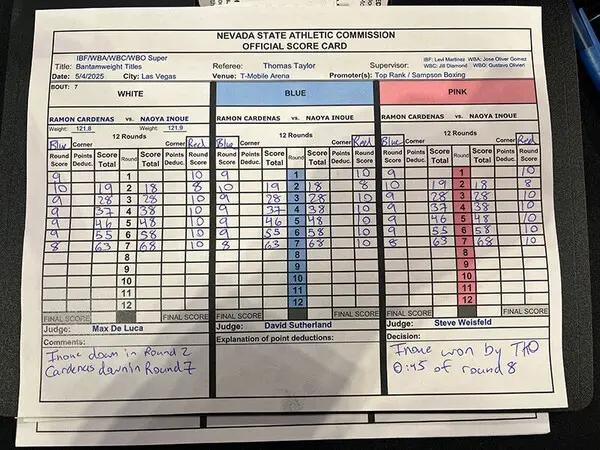 NEVADA STATE ATHLETIC COMMISSION
OFFICIAL SCORE CARD
IBF/WBA/WBC/WBO Super
Title: Bantamweight Titles Referee: Thomas Taylor Supervisor: IBF: Levi Martinez WBA: Jose Oliver Gomez
WBC: Jill Diamond WBO: Gustavo Olivieri
Date: 5/4/2025 City: Las Vegas Venue: T-Mobile Arena Promoter(s): Top Rank / Sampson Boxing
BOUT: 7
WHITE BLUE PINK
RAMON CARDENAS vs. NAOYA INOUE RAMON CARDENAS vs. NAOYA INOUE RAMON CARDENAS vs. NAOYA INOUE
Weight: 121.8 Weight: 121.9
12 Rounds 12 Rounds 12 Rounds
Blue Corner Corner Red Blue Corner Corner Red Blue Corner Corner Red
Round Score Points Deduc. Score Total Round Score Total Points Deduc. Round Score Round Score Points Deduc. Score Total Round Score Total Points Deduc. Round Score Round Score Points Deduc. Score Total Round Score Total Points Deduc. Round Score
9 1 10 9 1 10 9 1 10
10 19 2 18 8 10 19 2 18 8 10 19 2 18 8
9 28 3 28 10 9 28 3 28 10 9 28 3 28 10
9 37 4 38 10 9 37 4 38 10 9 37 4 38 10
9 46 5 48 10 9 46 5 48 10 9 46 5 48 10
9 55 6 58 10 9 55 6 58 10 9 55 6 58 10
8 63 7 68 10 8 63 7 68 10 8 63 7 68 10
8 8 8
9 9 9
10 10 10
11 11 11
12 12 12
FINAL SCORE FINAL SCORE FINAL SCORE FINAL SCORE FINAL SCORE FINAL SCORE
Judge: Max De Luca Judge: David Sutherland Judge: Steve Weisfeld
Comments: Explanation of point deductions: Decision:
Inoue down in Round 2 Inoue won by TKO
Cardenas down in Round 7 0:45 of round 8